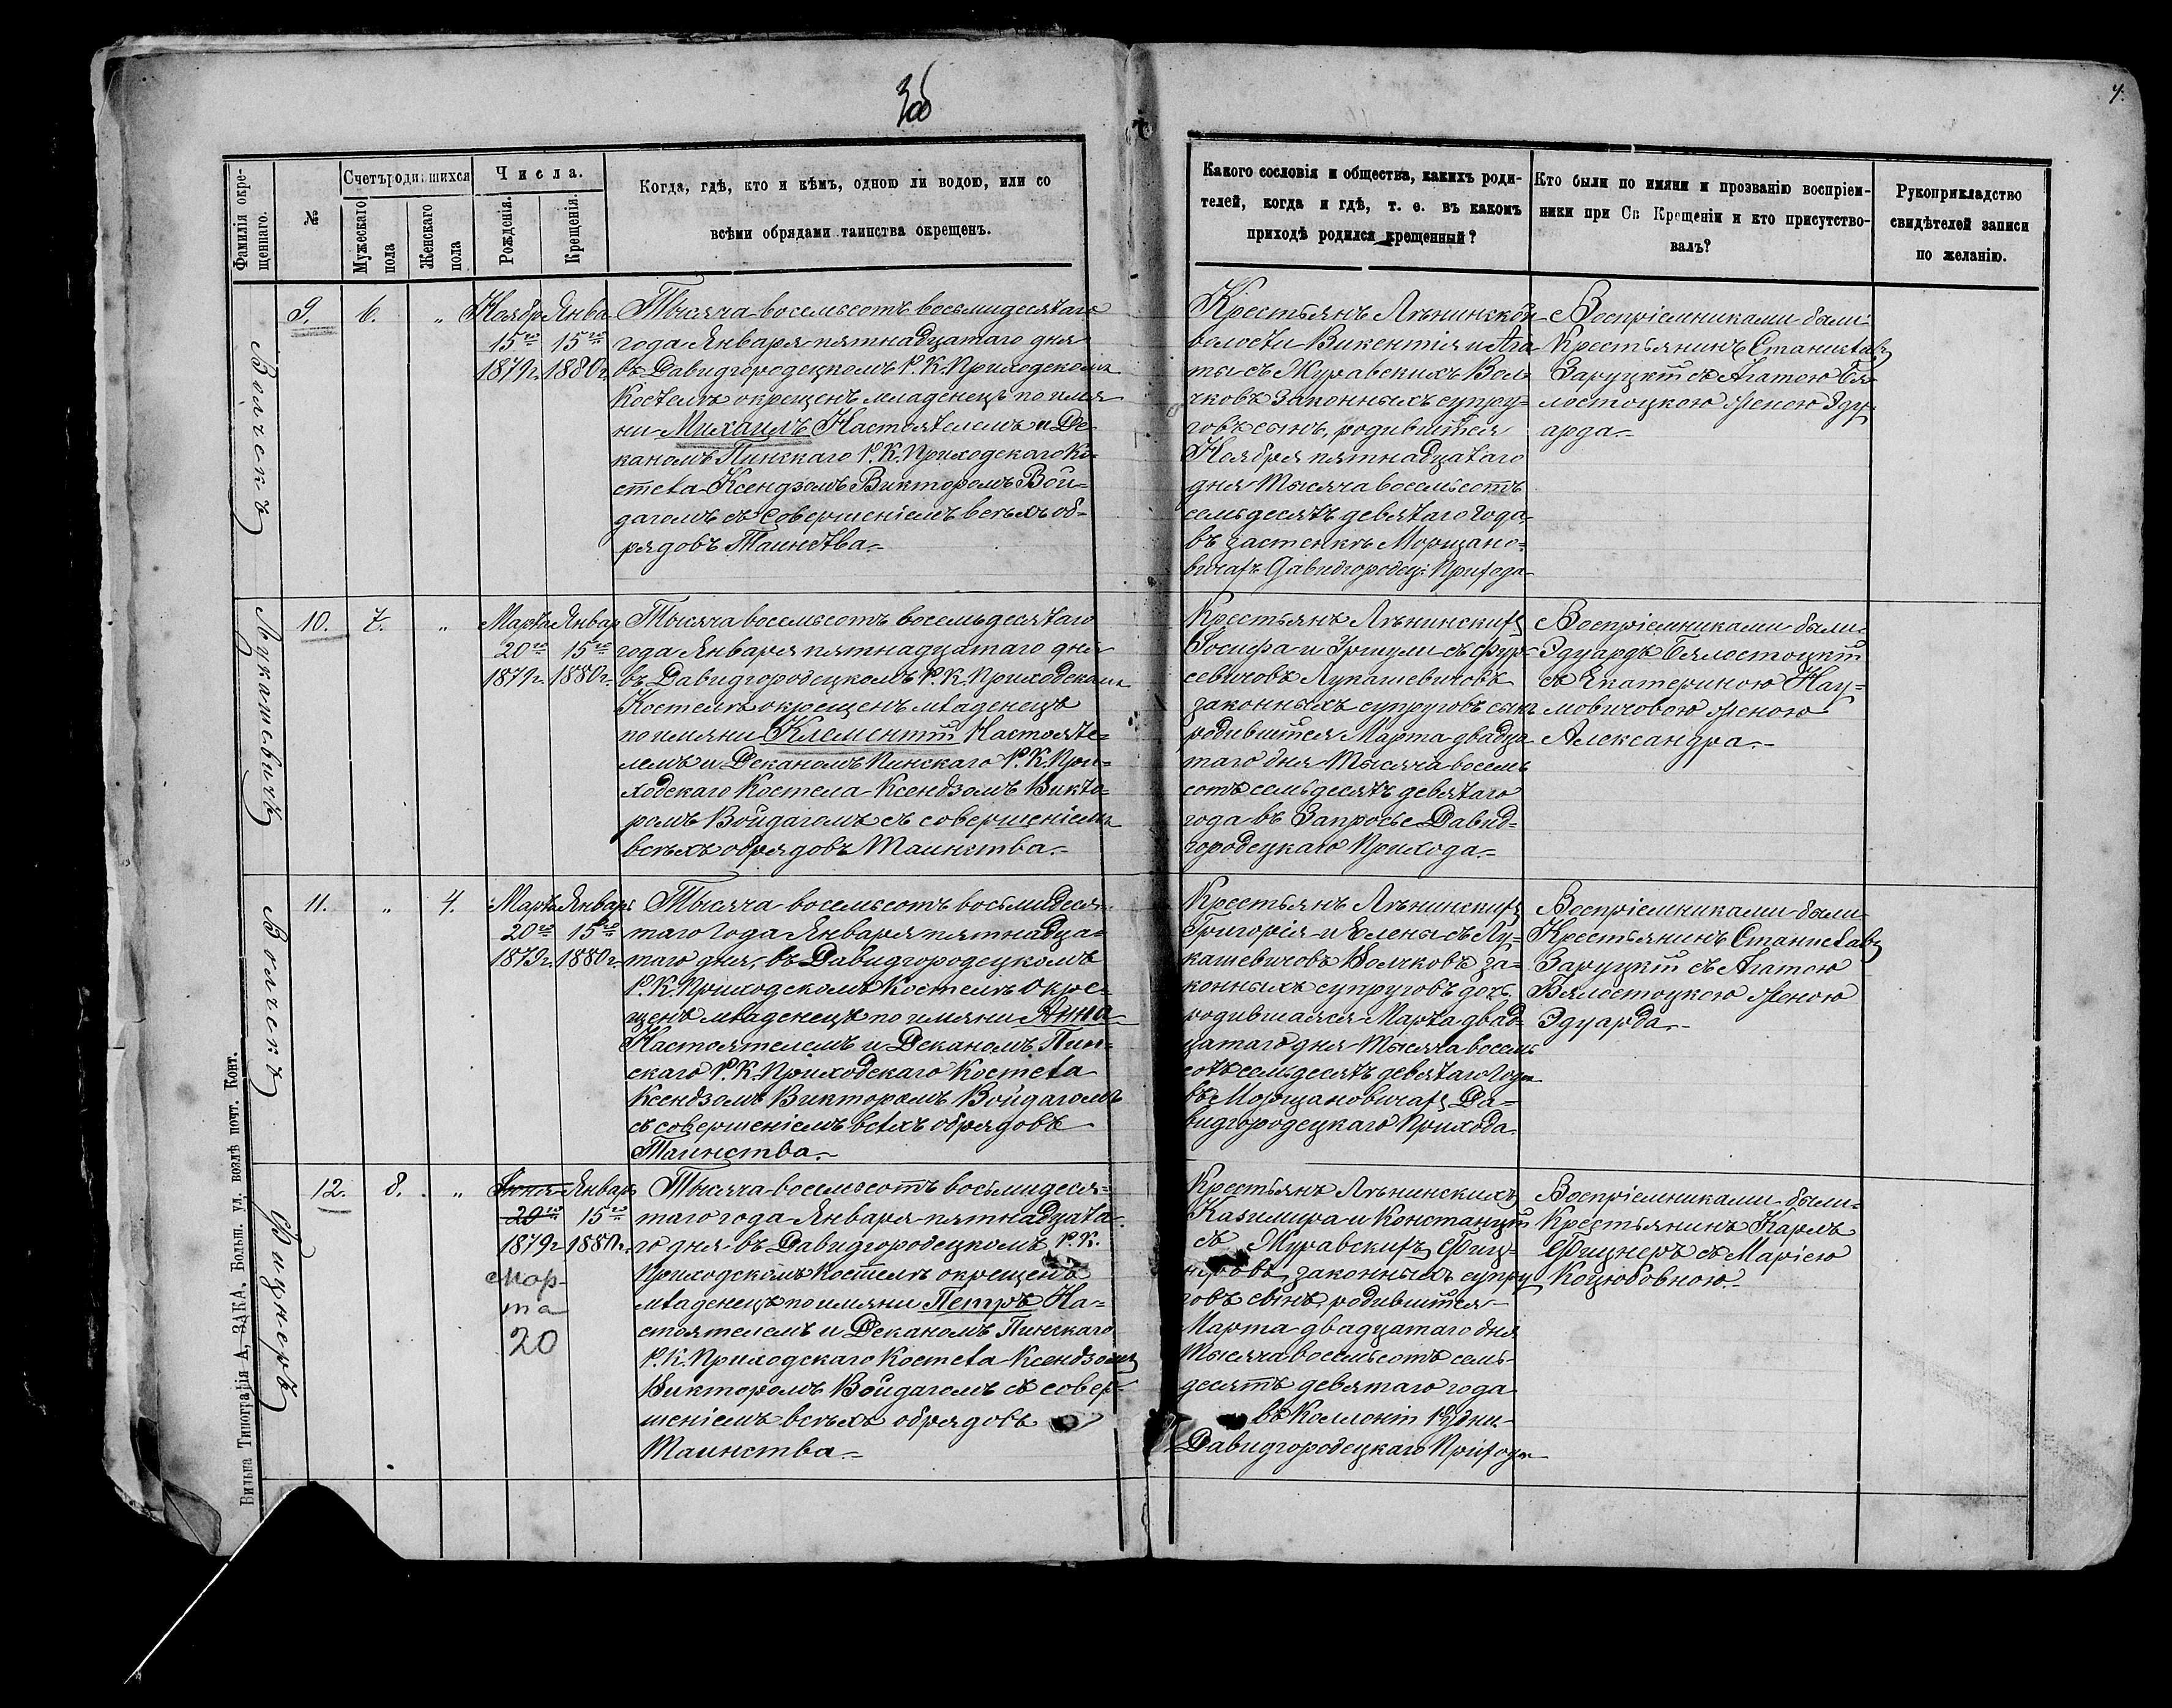 3об
4.
Фамилія окре-
щеннаго.
№
Счетъ родившихся
Мужескаго
пола
Женскаго
пола
Числа.
Рожденія.
Крещенія.
Когда, гдѣ, кто и кѣмъ, одною ли водою, или со
всѣми обрядами таинства окрещенъ.
Какого сословія и общества, какихъ роди-
телей, когда и гдѣ, т. е. въ какомъ
приходѣ родился крещенный?
Кто были по имяни и прозванію воспріем-
ники при Св Крещеніи и кто присутство-
валъ?
Рукоприкладство
свидѣтелей записи
по желанію.
Волчекъ
9.
6.
„
Ноябр
15го
1879г.
Янва
15го
1880г.
Тысяча восемьсотъ восьмидесятаго
года Января пятнадцатаго дня
въ Давидгородецкомъ Р. К. Приходскомъ
Костелѣ окрещенъ младенецъ по имя
ни Михаилъ Настоятелемъ и Де
каномъ Пинскаго Р. К. Приходскаго Ко-
стела Ксендзомъ Викторомъ Вой-
дагомъ съ совершеніемъ всѣхъ об-
рядовъ Таинства.-
Крестьянъ Лѣнинской
волости Викентія и Ага
ты съ Журавскихъ Вол-
чковъ законныхъ супру-
говъ сынъ, родившійся
Ноября пятнадцатаго
дня тысяча восемьсотъ
семьдесятъ девятаго года
въ застенкѣ Морщано-
вичахъ Давидгородец: Прихода
Воспріемниками были
Крестьянинъ Станиславъ
Заруцкій съ Агатою Бя
лостоцкою женою Эду-
арда.-
Лукашевичъ
10.
7.
„
Марта
20го
1879г.
Январ
15го
1880г.
Тысяча восемьсотъ восемьдесятаго
года Января пятнадцатаго дня
въ Давидгородецкомъ Р. К. Приходскомъ
Костелѣ окрещенъ младенецъ
по имяни Клементій Настояте-
лемъ и Деканомъ Пинскаго Р. К. При-
ходскаго Костела Ксендзомъ Викто-
ромъ Войдагомъ съ совершеніемъ
всѣхъ обрядовъ Таинства.-
Крестьянъ Лѣнинскихъ
Іосифа и Уршули съ Фур-
севичовъ Лукашевичовъ
законныхъ супруговъ сынъ
родившійся Марта двадца
таго дня тысяча восемь
сотъ семьдесятъ девятаго
года въ Запросье Давид-
городецкаго Прихода.-
Воспріемниками были
Эдуардъ Бялостоцкій
съ Екатериною Нау-
мовичовою женою
Александра.-
Волчекъ
11.
„
4.
Марта
20го
1879г.
Январь
15го
1880г.
Тысяча восемьсотъ восьмидеся-
таго года Января пятнадца-
таго дня, въ Давидгородецкомъ
Р. К. Приходскомъ Костелѣ окре-
щенъ младенецъ по имяни Анна
Настоятелемъ и Деканомъ Пин-
скаго Р. К. Приходскаго Костела
Ксендзомъ Викторомъ Войдагомъ
съ совершеніемъ всѣхъ обрядовъ
Таинства.-
Крестьянъ Лѣнинскихъ
Григорія и Елены съ Лу-
кашевичовъ Волчковъ за-
конныхъ супруговъ дочь
родившаяся Марта двад-
цатаго дня тысяча восемь
сотъ семьдесятъ девятаго года
въ Морщановичахъ Да-
видгородецкаго Прихода.
Воспріемниками были
Крестьянинъ Станиславъ
Заруцкій съ Агатою
Бялостоцкою женою
Эдуарда.-
Фицнеръ
12.
8.
„
Іюня
20го
1879г
Мар-
та
20
Январь
15го
1880г.
Тысяча восемьсотъ восьмидеся-
таго года Января пятнадцата-
го дня въ Давидгородецкомъ Р. К.
Приходскомъ Костелѣ окрещенъ
младенецъ по имяни Петръ На-
стоятелемъ и Деканомъ Пинскаго
Р. К. Приходскаго Костела Ксендзомъ
Викторомъ Войдагомъ съ совер-
шеніемъ всѣхъ обрядовъ
Таинства.-
Крестьянъ Лѣнинскихъ
Казимира и Констанціи
съ Журавскихъ Фиц-
неровъ законныхъ супру
говъ сынъ, родившійся
Марта двадцатаго дня
тысяча восемьсотъ семь-
десятъ девятаго года
въ Коллоніи
Давидгородецкаго Прихода
Воспріемниками были
Крестьянинъ Карлъ
Фицнеръ съ Маріею
Коцюбовною.-
Вильна Типографія А, ЗАКА, Больш. ул. возлѣ почт. Конт.